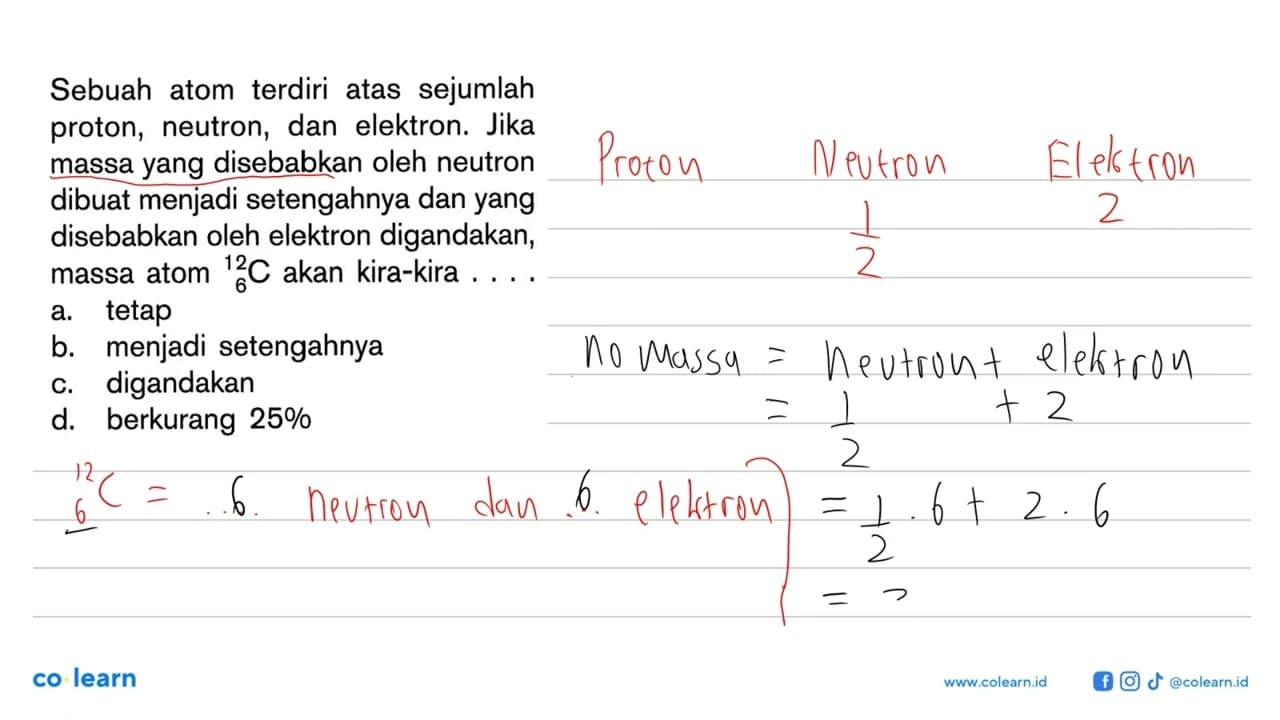 Sebuah atom terdiri atas sejumlah
proton, neutron, dan elektron. Jika
massa yang disebabkan oleh neutron
dibuat menjadi setengahnya dan yang
disebabkan oleh elektron digandakan,
massa atom ¹²₆C akan kira-kira . . . .
a. tetap
b. menjadi setengahnya
c. digandakan
d. berkurang 25%
Proton Neutron Elektron
1/2 2
no massa = neutron + elektron
= 1/2 + 2
¹²₆C = ..6. neutron dan .6. elektron
= 1/2 . 6 + 2 . 6
=
co learn
www.colearn.id @colearn.id